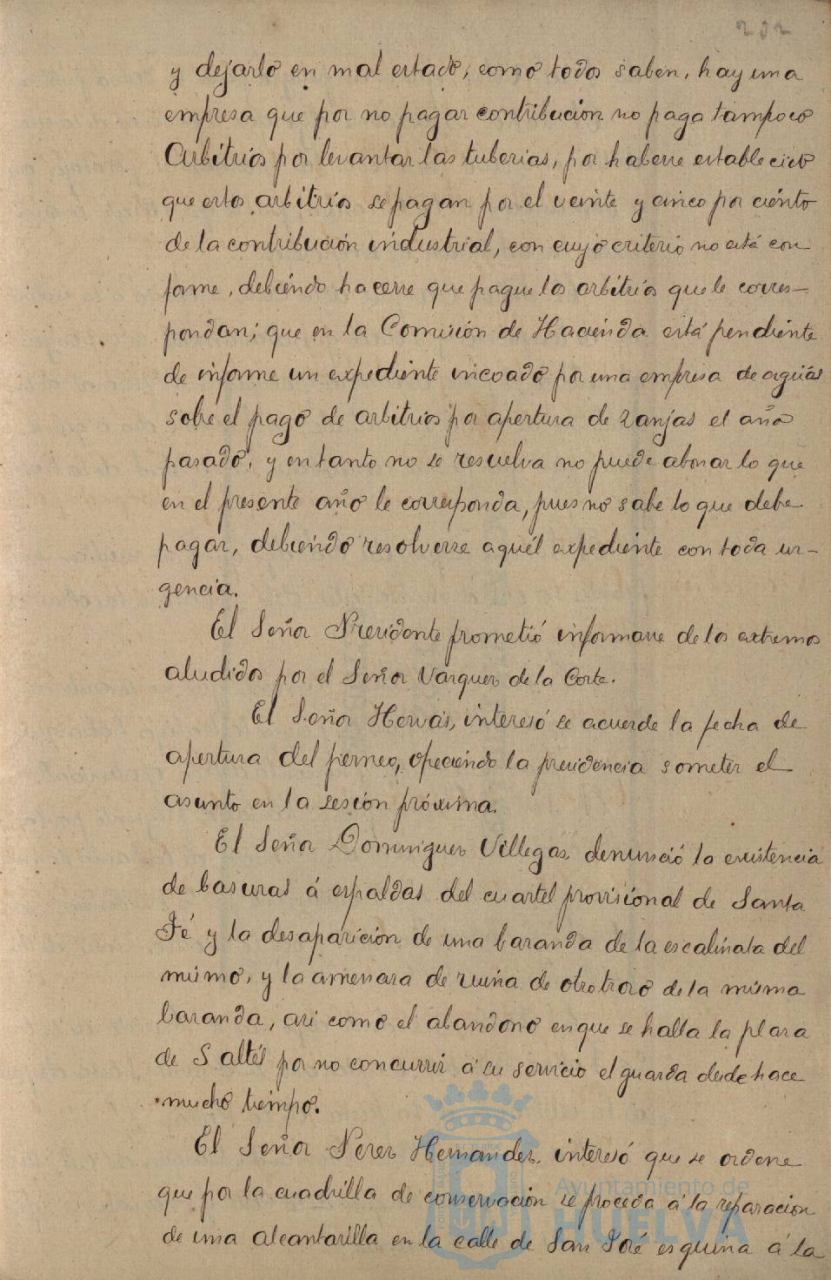 202
y dejarlo en mal estado, como todos saben, hay una
empresa que por no pagar contribución no paga tampoco
Arbitrios por levantar las tuberias, por haberse establecido
que estos arbitrios se pagan por el veinte y cinco por ciento
de la contribución industrial, con cuyo criterio no está con
forme, debiéndo hacerse que pague los arbitrios que le corres-
pondan; que en la Comisión de Hacienda está pendiente
de informe un expediente incoado por una empresa de aguas
sobre el pago de arbitrios por apertura de zanjas el año
pasado, y en tanto no se resuelva no puede abonar lo que
en el presente año le corresponda, pues no sabe lo que debe
pagar, debiendo resolverse aquél expediente con toda ur-
gencia.
El Señor Presidente prometió informarse de los extremos
aludidos por el Señor Vazquez de la Corte.
El Señor Hervás, interesó se acuerde la fecha de
apertura del perneo, ofreciendo la presidencia someter el
asunto en la sesión próxima.
El Señor Dominguez Villegas, denunció la existencia
de basuras á espaldas del cuartel provisional de Santa
Fé y la desaparición de una baranda de la escalinata del
mismo, y la amenaza de ruina de otro trozo de la misma
baranda, asi como el abandono en que se halla la plaza
de Saltés por no concurrir á su servicio el guarda desde hace
mucho tiempo.
El Señor Perez Hernandez, interesó que se ordene
que por la cuadrilla de conservación se proceda á la reparación
de una alcantarilla en la calle de San José esquina á la
Ayuntamiento de
HUELVA